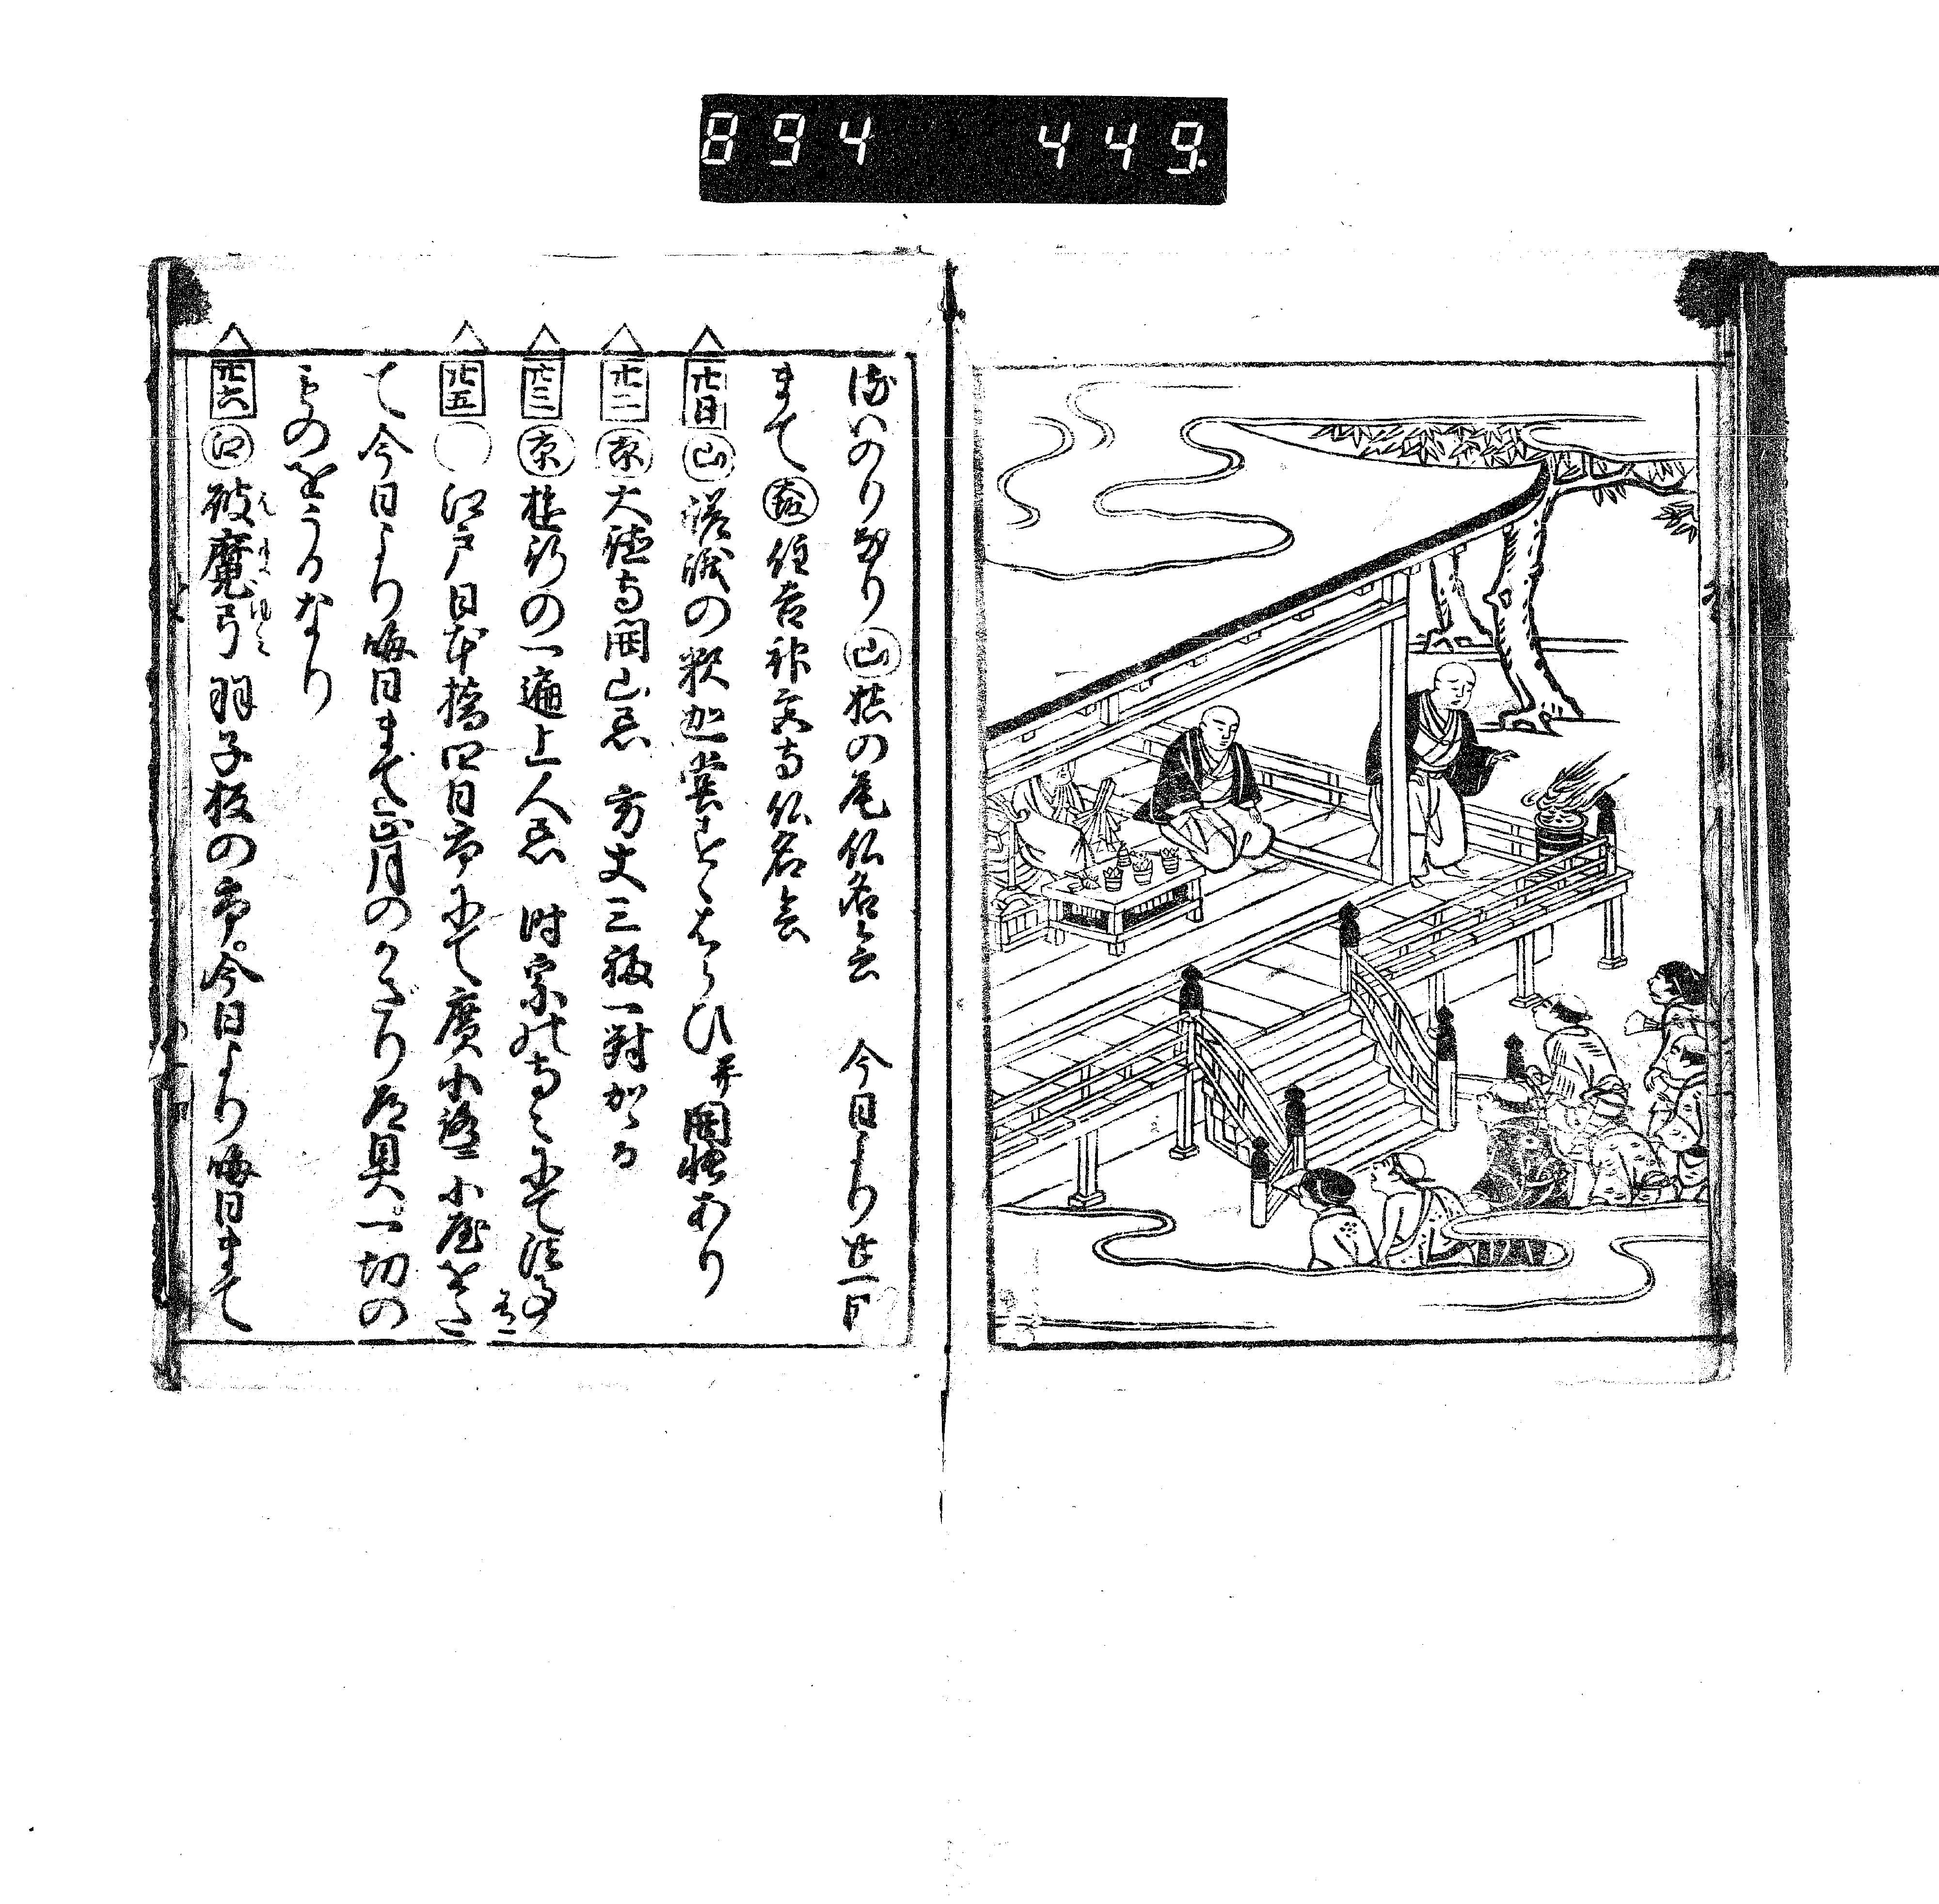 894 449
はいのりあり㊤山槙の尾仏名会 今日より廿一日
まて 住吉神宮寺仏名会
廿日 山 嵯峨の釈迦堂すゝはらひ并開帳あり
廿二 京 大徳寺開山忌 方丈三幅一対かゝる
廿三 京 一遍上人忌 時宗の寺々にて法事
有之
廿五 江戸日本橋四日市にて廣小路ニ小屋をた
て今日より晦日まで正月のかざり道具一切の
ものをうるなり
廿六 江 破魔弓 羽子板の市。今日より晦日まて
はまゆみ